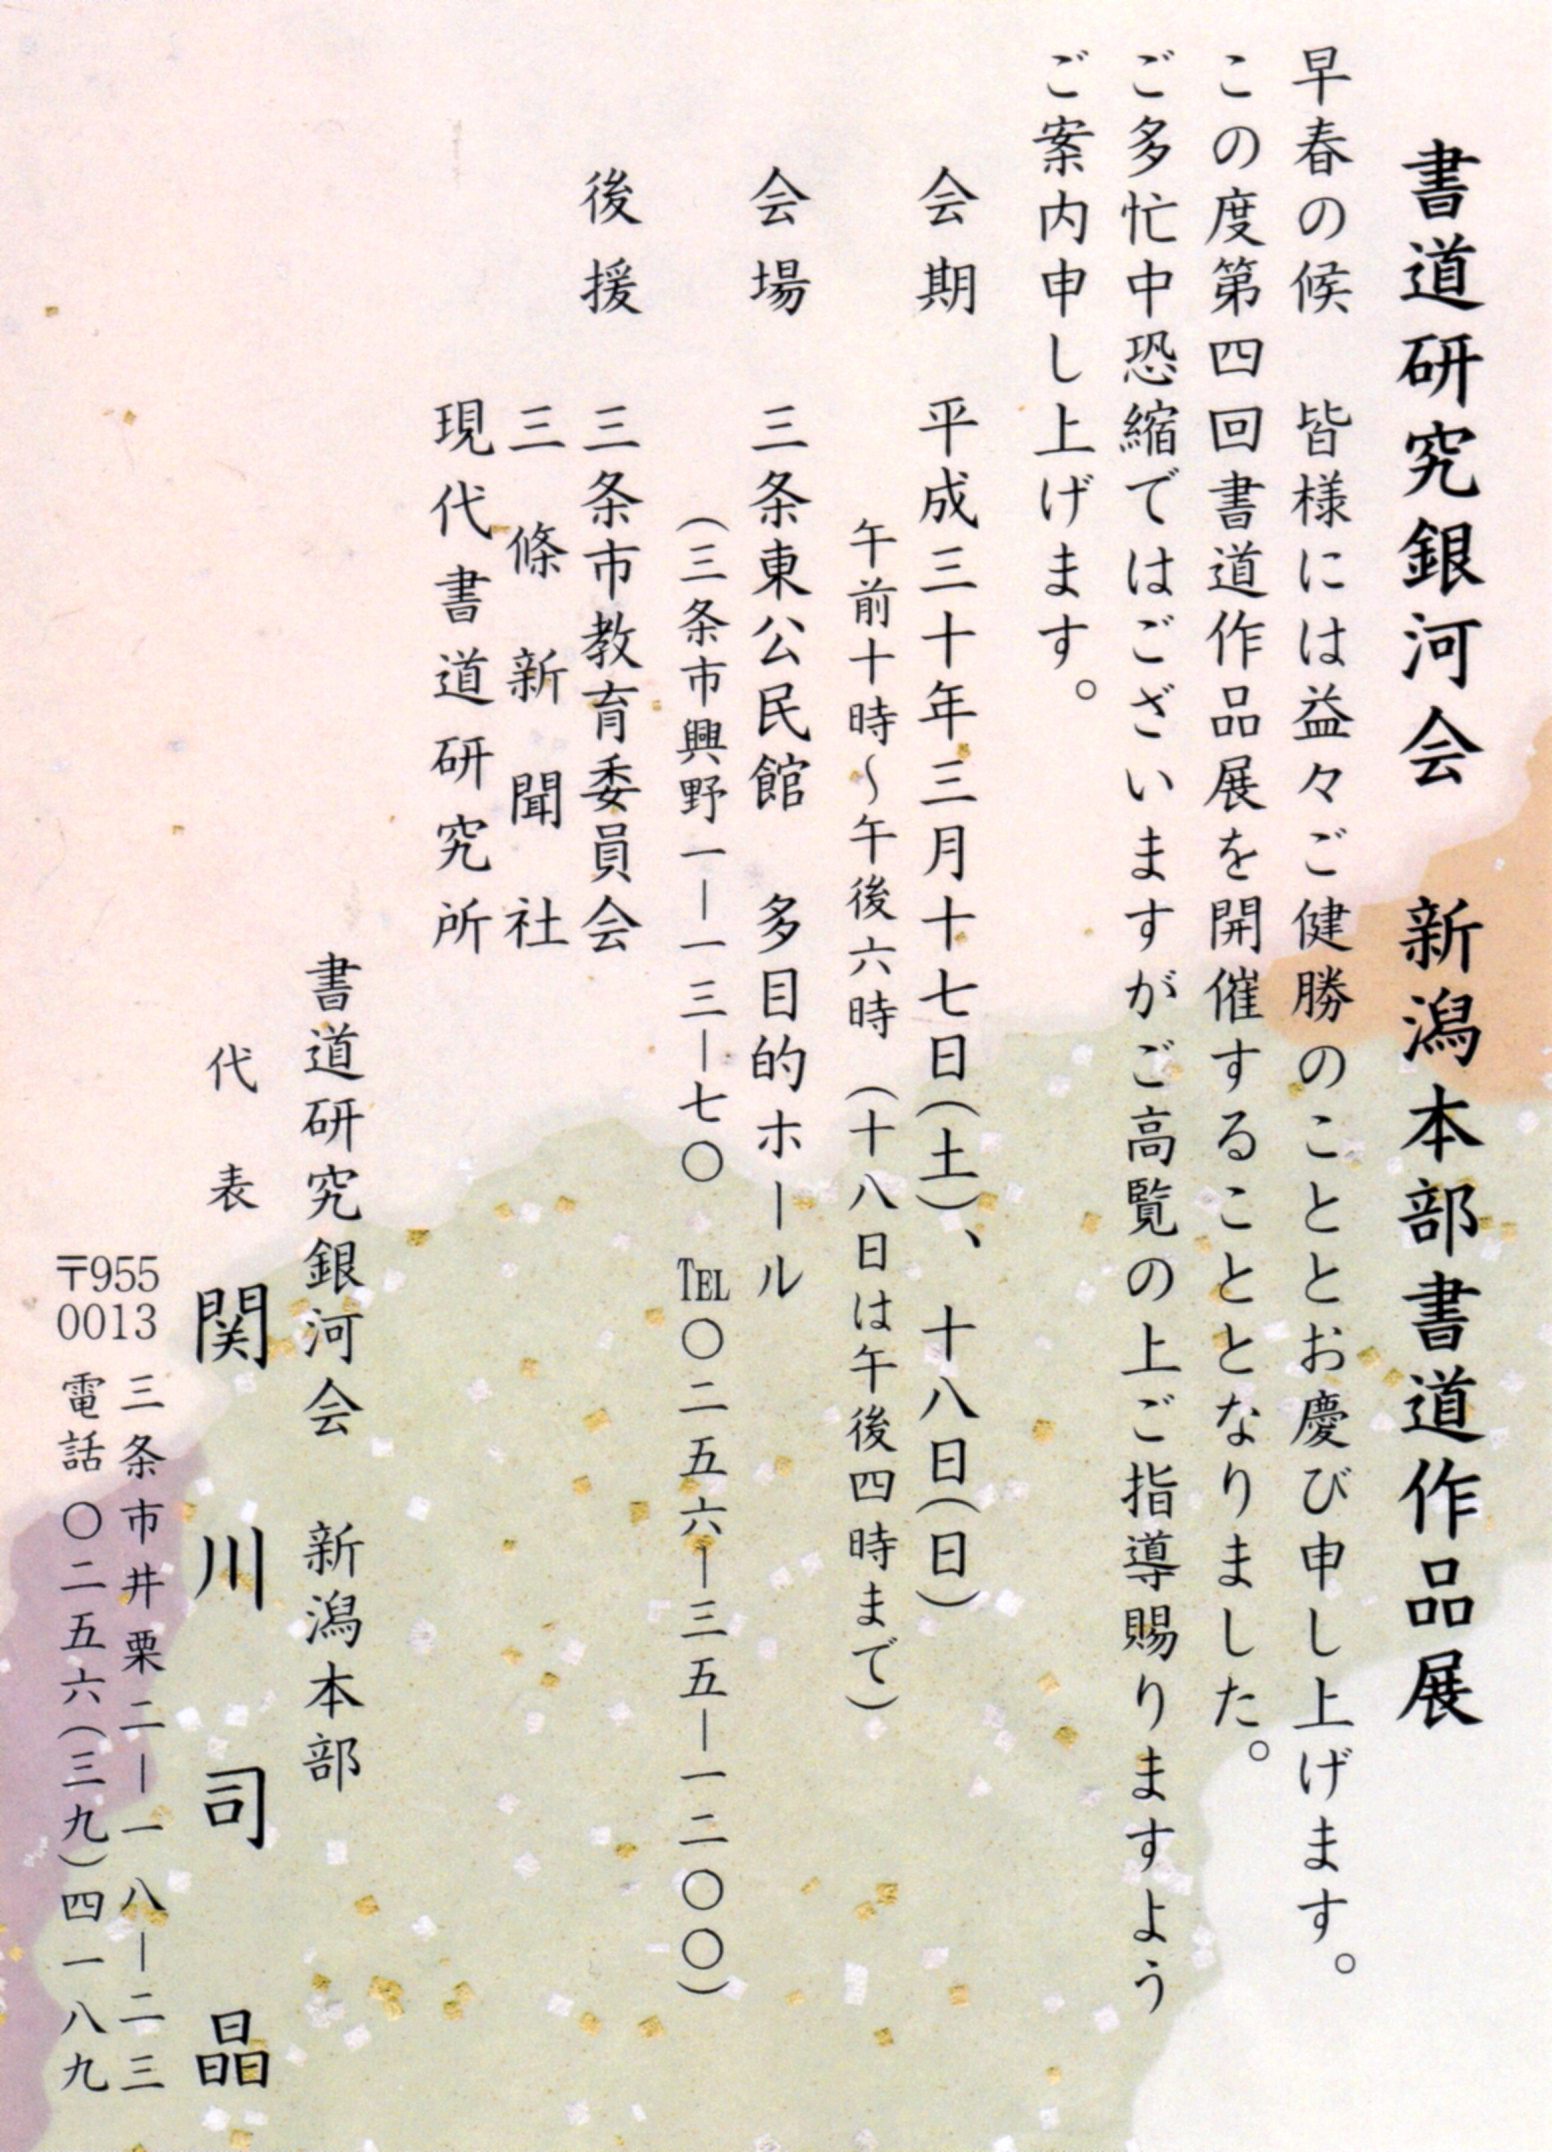 書道研究銀河会　新潟本部書道作品展
早春の候　皆様には益々ご健勝のこととお慶び申し上げます。
この度第四回書道作品展を開催することとなりました。
ご多忙中恐縮ではございますがご高覧の上ご指導賜りますよう
ご案内申し上げます。
会期　平成三十年三月十七日(土)、十八日(日)
午前十時～午後六時　(十八日は午後四時まで)
会場　三条東公民館　多目的ホール
(三条市興野一―一三―七〇　℡〇二五六―三五―一二〇〇)
後援　三条市教育委員会
三條新聞社
現代書道研究所
書道研究銀河会　新潟本部
代表　関川司晶
〒955 0013　三条市井栗二―一八―二三
電話〇二五六(三九)四一八九